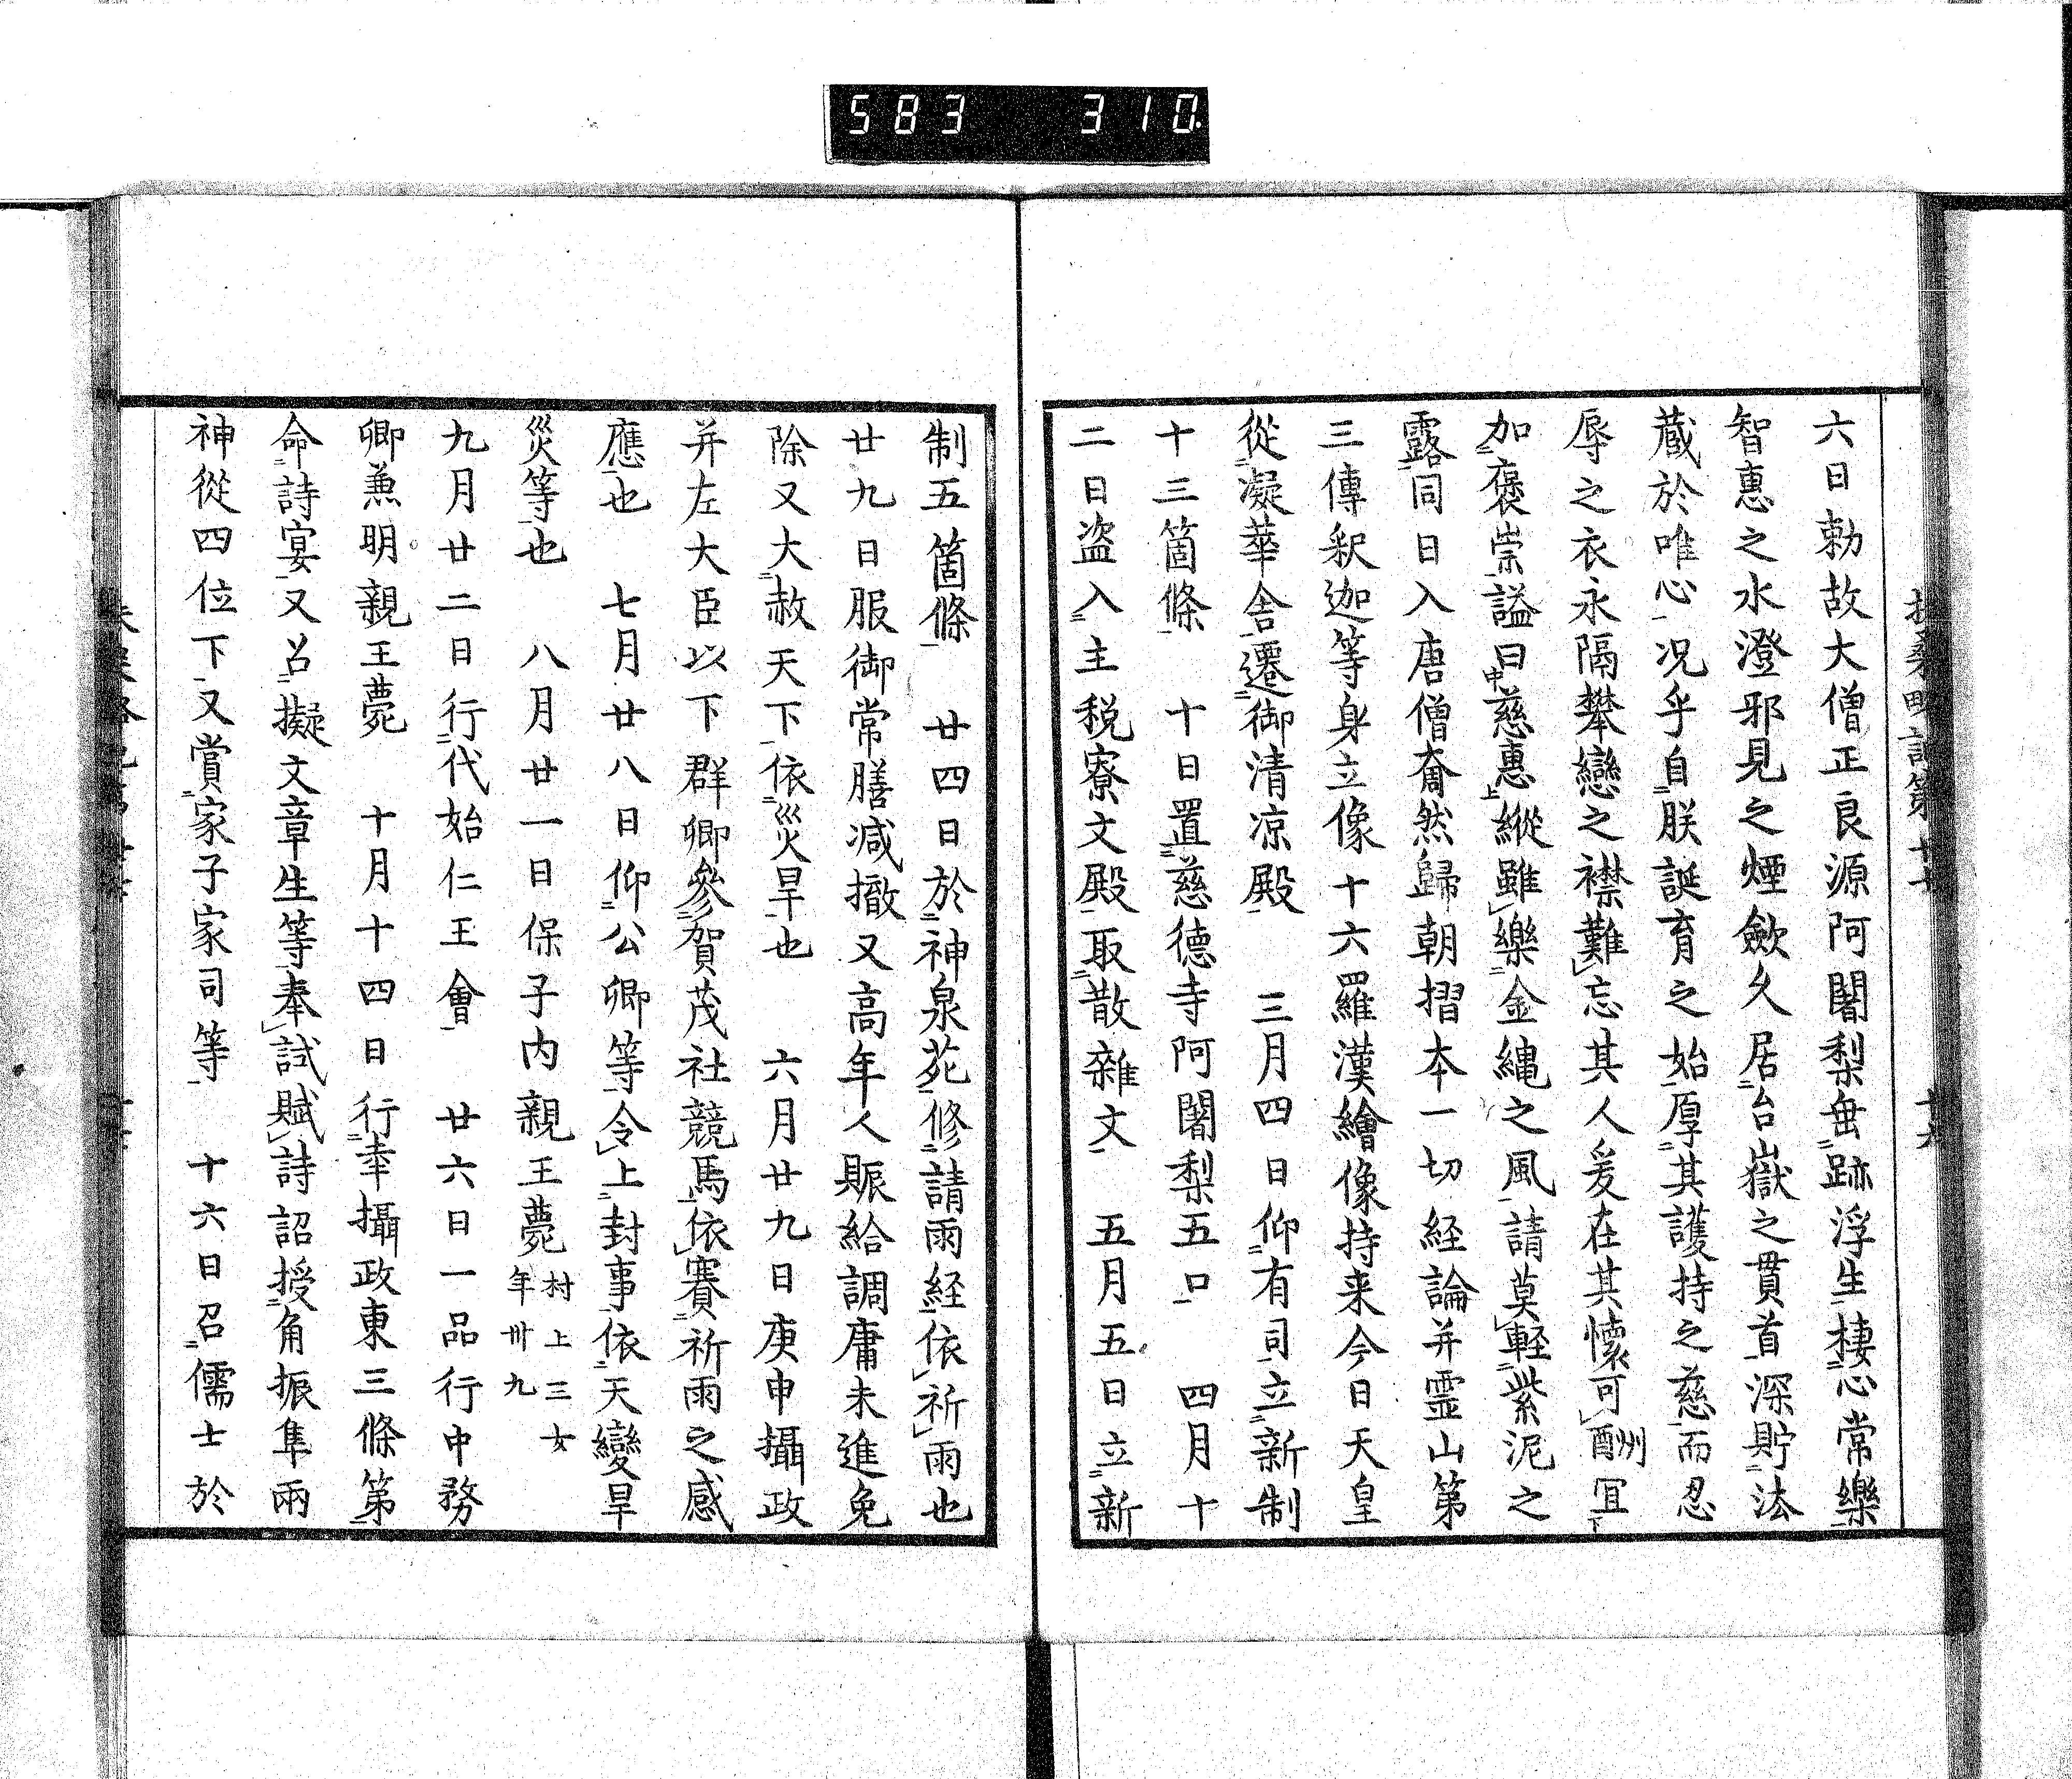 583 310
六日勅故大僧正良源阿闍梨無跡浮生棲心常樂
智惠之水澄邪見之煙歛久居台嶽之貫首深貯法
蔵於唯心况乎自朕誕育之始厚其護持之慈而忍
辱之衣永隔攀戀之襟難忘其人爰在其懷可酬冝
加褒崇謚曰慈惠縱雖樂金縄之風請莫輕紫泥之
露同日入唐僧奝然歸朝摺本一切経論并霊山第
三傳釈迦等身立像十六羅漢繪像持来今日天皇
從凝華舎遷御清凉殿 三月四日仰有司立新制
十三箇條 十日置慈德寺阿闍梨五口 四月十
二日盗入主税寮文殿取散雜文 五月五日立新
制五箇條 廿四日於神泉苑修請雨経依祈雨也
廿九日服御常膳减撤又高年人賑給調庸未進免
除又大赦天下依災旱也 六月廿九日庚申攝政
并左大臣以下群卿參賀茂社競馬依賽祈雨之感
應也 七月廿八日仰公卿等令上封事依天變旱
災等也 八月廿一日保子内親王薨村上三女年卅九
九月廿二日行代始仁王會 廿六日一品行中務
卿兼明親王薨 十月十四日行幸攝政東三條第
命詩宴又召擬文章生等奉試賦詩詔授角振隼兩
神從四位下又賞家子家司等 十六日召儒士於